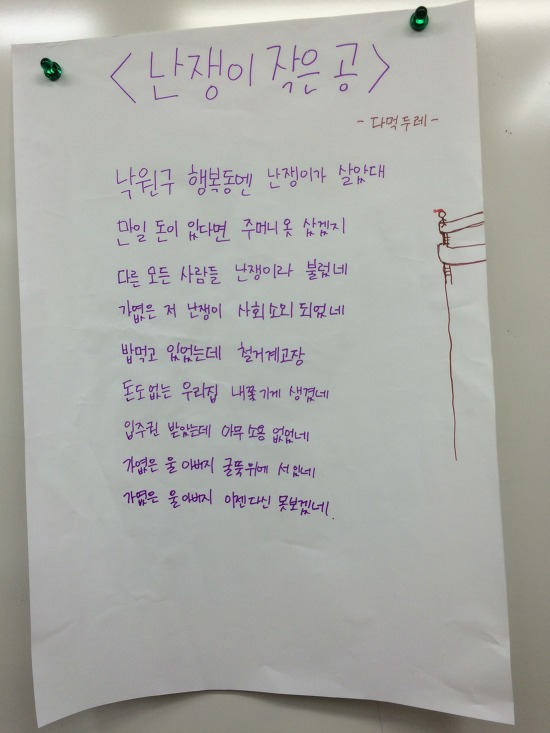 <난쟁이 작은 공>
- 다먹두레 -
낙원구 행복동엔 난쟁이가 살았대
만일 돈이 있다면 주머니옷 샀겠지
다른 모든 사람들 난쟁이라 불렀네
가엾은 저 난쟁이 사회소외 되었네
밥먹고 있었는데 철거계고장
돈도없는 우리집 내쫓기게 생겼네
입주권 받았는데 아무소용 없었네
가엾은 울아버지 굴뚝위에 서있네
가엾은 울아버지 이젠다신 못보겠네.